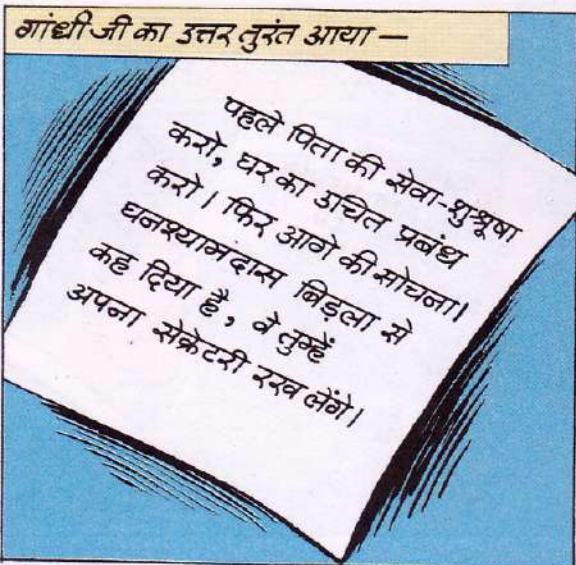 गांधी जी का उत्तर तुरंत आया —
पहले पिता की सेवा-शुश्रूषा
करो, घर का उचित प्रबंध
करो। फिर आगे की सोचना।
घनश्यामदास बिड़ला से
कह दिया है, वे तुम्हें
अपना सेक्रेटरी रख लेंगे।